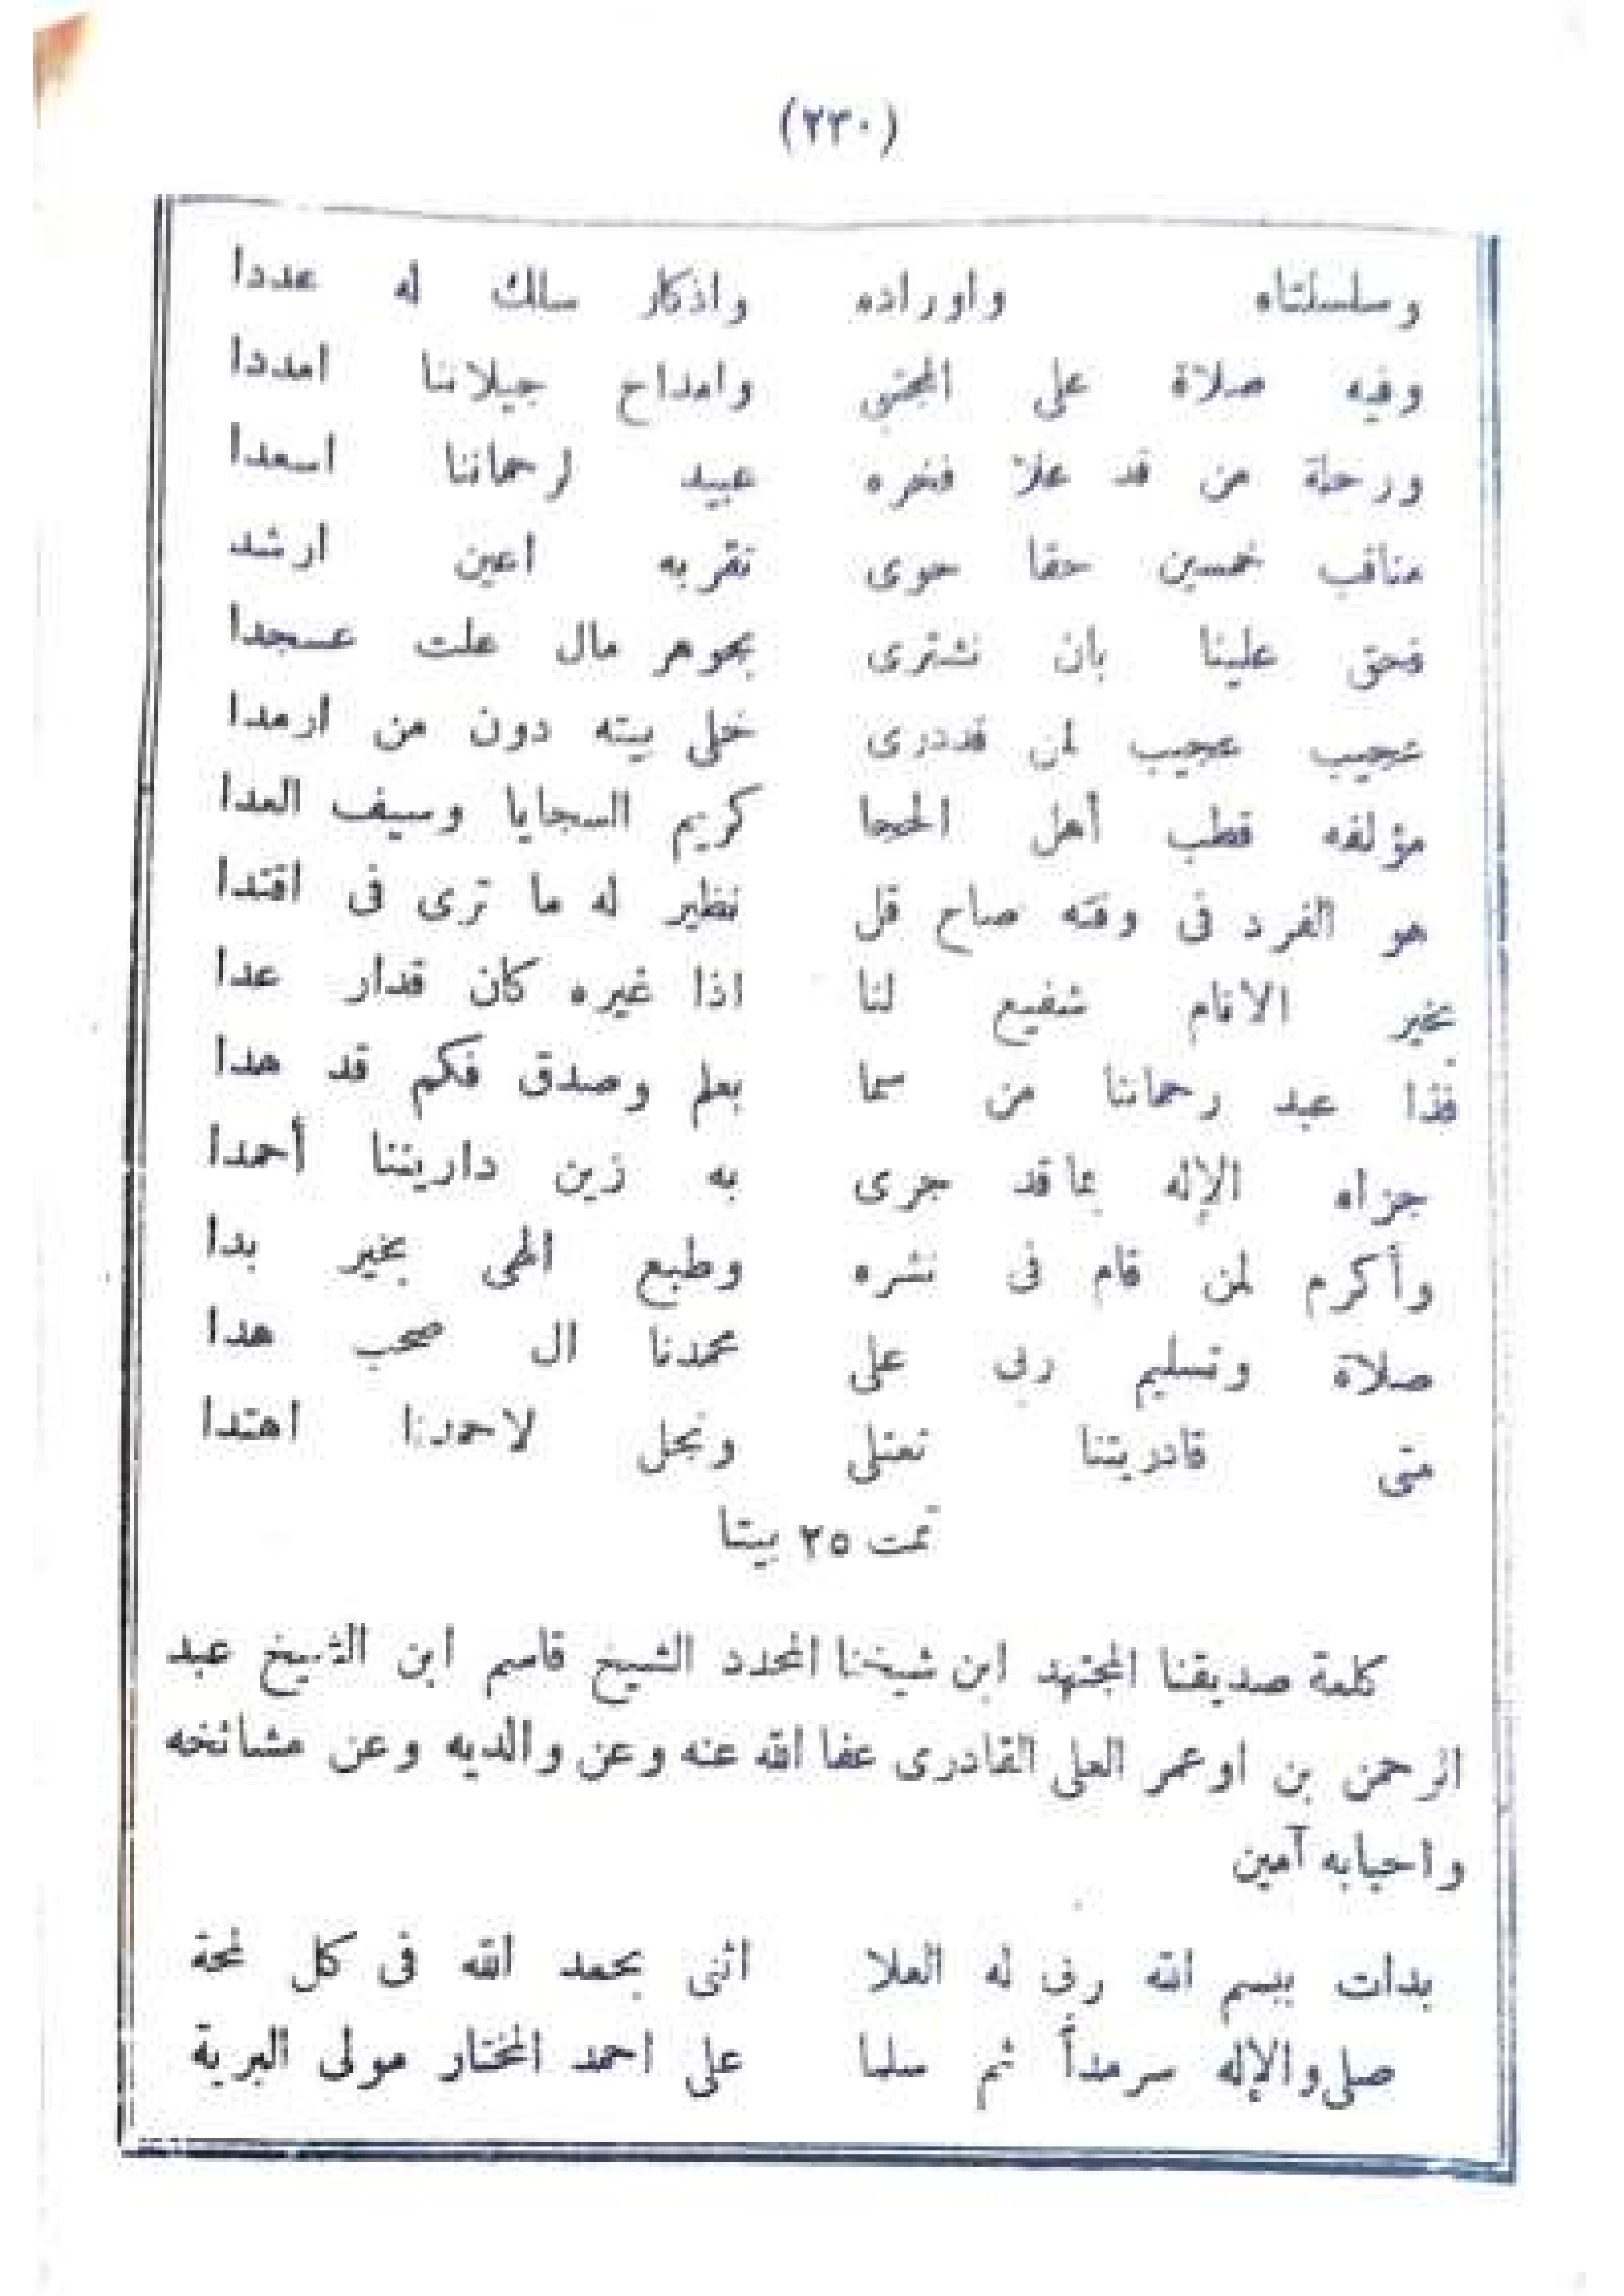 (٢٣٠)
وسلسلتاه واوراده واذكار سالك له عددا
وفيه صلاة على المجتبى وامداح جيلاننا امددا
ورحلة من قد علا فخره عبيد لرحماننا اسعدا
مناقب خمسين حقا حوى تقربه اعين ارشد
فحق علينا بان نشترى بجوهر مال علت عسجدا
عجيب عجيب لمن قددرى خلى بيته دون من ارمدا
مؤلفه قطب أهل الحجا كريم السجايا وسيف العدا
هو الفرد فى وقته صاح قل نظير له ما ترى فى اقتدا
بخير الانام شفيع لنا اذا غيره كان قدار عدا
فذا عبد رحماننا من سما بعلم وصدق فكم قد هدا
جزاه الإله بماقد جرى به زين داريننا أحمدا
وأكرم لمن قام فى نشره وطبع الهى بخير بدا
صلاة وتسليم ربى على محمدنا ال صحب هدا
متى قادريتنا تعتلى ونجل لاحمدنا اهتدا
تمت ٢٥ بيتا
كلمة صديقنا المجتهد ابن شيخنا المحدد الشيخ قاسم ابن الشيخ عبد
الرحمن بن اوعمر العلى القادرى عفا الله عنه وعن والديه وعن مشائخه
واحبابه آمين
بدات ببسم الله ربى له العلا اثنى بحمد الله فى كل لمحة
صلى والإله سرمداً ثم سلما على احمد المختار مولى البرية